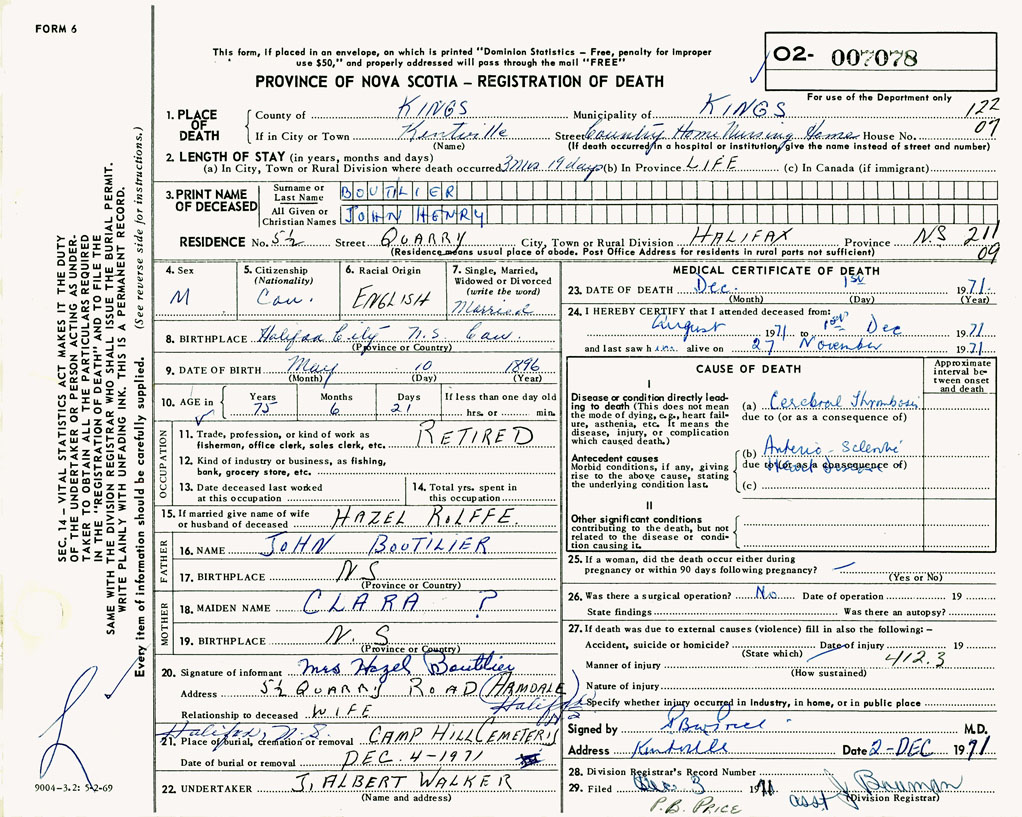 FORM 6
This form, if placed in an envelope, on which is printed "Dominion Statistics – Free, penalty for improper
use $50," and properly addressed will pass through the mail "FREE"
PROVINCE OF NOVA SCOTIA – REGISTRATION OF DEATH
O2- 007078
For use of the Department only
122
07
1. PLACE OF DEATH
County of KINGS Municipality of KINGS
If in City or Town Kentville Street Country Home Nursing Home House No.
(Name) (If death occurred in a hospital or institution, give the name instead of street and number)
2. LENGTH OF STAY (in years, months and days)
(a) In City, Town or Rural Division where death occurred 3 mos 19 days (b) In Province LIFE (c) In Canada (if immigrant)
3. PRINT NAME OF DECEASED
Surname or Last Name BOUTILIER
All Given or Christian Names JOHN HENRY
RESIDENCE No. 5½ Street QUARRY City, Town or Rural Division HALIFAX Province N.S 211
09
(Residence means usual place of abode. Post Office Address for residents in rural parts not sufficient)
4. Sex
M
5. Citizenship
(Nationality)
Can.
6. Racial Origin
ENGLISH
7. Single, Married,
Widowed or Divorced
(write the word)
Married
8. BIRTHPLACE Halifax City N.S. Can.
(Province or Country)
9. DATE OF BIRTH May 10 1896
(Month) (Day) (Year)
10. AGE in
Years Months Days If less than one day old
75 6 21 hrs. or min.
OCCUPATION
11. Trade, profession, or kind of work as
fisherman, office clerk, sales clerk, etc. RETIRED
12. Kind of industry or business, as fishing,
bank, grocery store, etc.
13. Date deceased last worked
at this occupation
14. Total yrs. spent in
this occupation
15. If married give name of wife
or husband of deceased HAZEL ROLFFE.
FATHER
16. NAME JOHN BOUTILIER
17. BIRTHPLACE N S
(Province or Country)
MOTHER
18. MAIDEN NAME CLARA ?
19. BIRTHPLACE N. S
(Province or Country)
20. Signature of informant Mrs Hazel Boutilier
Address 5½ QUARRY ROAD (ARMDALE)
Halifax
Relationship to deceased WIFE
Halifax, N.S.
21. Place of burial, cremation or removal CAMP HILL CEMETERY
Date of burial or removal DEC. 4-1971
22. UNDERTAKER J, ALBERT WALKER
(Name and address)
MEDICAL CERTIFICATE OF DEATH
23. DATE OF DEATH Dec. 1st 1971.
(Month) (Day) (Year)
24. I HEREBY CERTIFY that I attended deceased from:
August 1971 to 1st Dec 1971
and last saw him alive on 27 November 1971
CAUSE OF DEATH
Approximate
interval be-
tween onset
and death
I
Disease or condition directly lead-
ing to death (This does not mean
the mode of dying, e.g., heart fail-
ure, asthenia, etc. It means the
disease, injury, or complication
which caused death.)
(a) Cerebral Thrombosis
due to (or as a consequence of)
Antecedent causes
Morbid conditions, if any, giving
rise to the above cause, stating
the underlying condition last.
(b) Arterio-Sclerotic
Heart Disease
due to (or as a consequence of)
(c)
II
Other significant conditions
contributing to the death, but not
related to the disease or condi-
tion causing it.
25. If a woman, did the death occur either during
pregnancy or within 90 days following pregnancy? —
(Yes or No)
26. Was there a surgical operation? No Date of operation 19
State findings Was there an autopsy?
27. If death was due to external causes (violence) fill in also the following: –
Accident, suicide or homicide? Date of injury 19
(State which) 412.3
Manner of injury
(How sustained)
Nature of injury
Specify whether injury occurred in industry, in home, or in public place
Signed by M.D.
Address Kentville Date 2-DEC 1971
28. Division Registrar's Record Number
29. Filed Dec. 3 1971 asst J Bauman
(Division Registrar)
P.B. PRICE
SEC. 14 – VITAL STATISTICS ACT MAKES IT THE DUTY
OF THE UNDERTAKER OR PERSON ACTING AS UNDER-
TAKER TO OBTAIN ALL THE PARTICULARS REQUIRED
IN THE "REGISTRATION OF DEATH" AND TO FILE THE
SAME WITH THE DIVISION REGISTRAR WHO SHALL ISSUE THE BURIAL PERMIT.
WRITE PLAINLY WITH UNFADING INK. THIS IS A PERMANENT RECORD.
Every item of information should be carefully supplied. (See reverse side for instructions.)
9004-3.2: 5-2-69